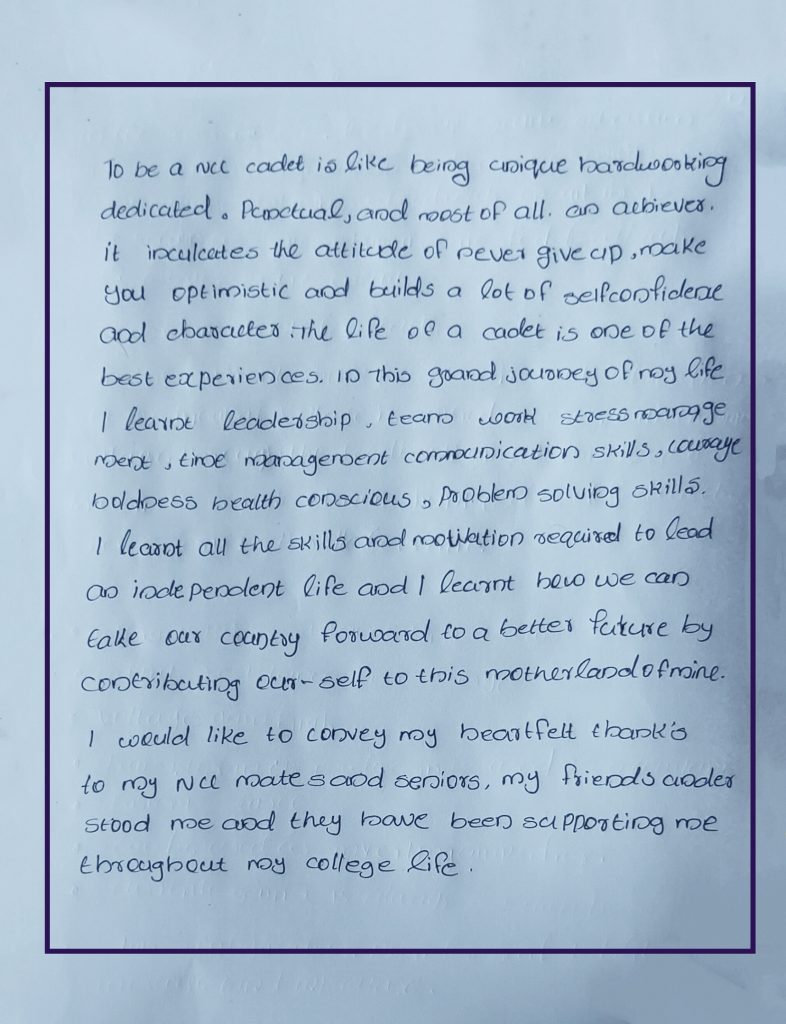 To be a NCC cadet is like being unique hardworking
dedicated. Punctual, and most of all. an achiever.
it inculcates the attitude of never give up, make
you optimistic and builds a lot of selfconfidence
and character. The life of a cadet is one of the
best experiences. in this grand journey of my life
I learnt leadership, team work stress manage
ment, time management communication skills, courage
boldness health conscious, problem solving skills.
I learnt all the skills and motivation required to lead
an independent life and I learnt how we can
take our country forward to a better future by
contributing our-self to this motherland of mine.
I would like to convey my heartfelt thank's
to my NCC mates and seniors, my friends under
stood me and they have been supporting me
throughout my college life.